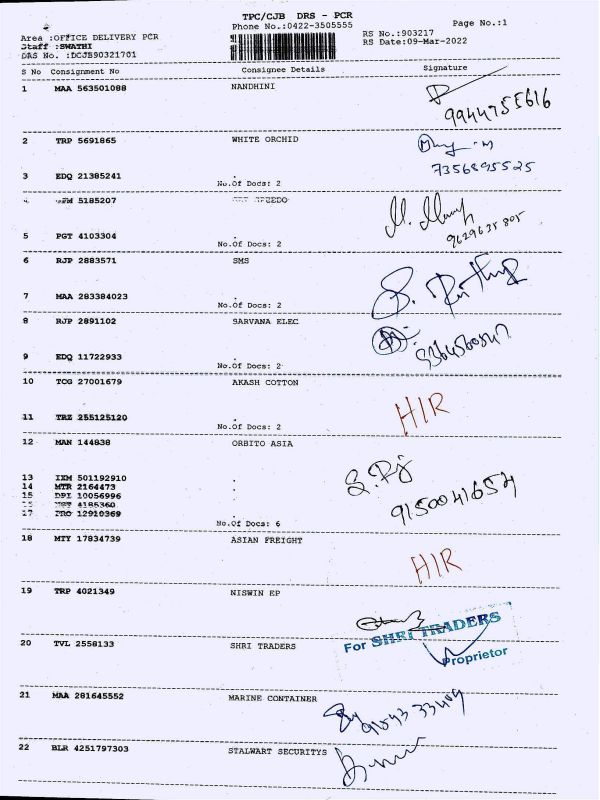 TPC/CJB DRS - PCR
Phone No.:0422-3505555
Page No.:1
Area :OFFICE DELIVERY PCR
Staff :SWATHI
DRS No. :DCJB90321701
RS No.:903217
RS Date:09-Mar-2022
S No Consignment No Consignee Details Signature
1 MAA 563501088 NANDHINI
9944755616
2 TRP 5691865 WHITE ORCHID
7356895525
3 EDQ 21385241 .
No.Of Docs: 2
5185207
9629635805
5 PGT 4103304 .
No.Of Docs: 2
6 RJP 2883571 SMS
7 MAA 283384023 .
No.Of Docs: 2
8 RJP 2891102 SARVANA ELEC
9 EDQ 11722933 .
No.Of Docs: 2
10 TCG 27001679 AKASH COTTON
HIR
11 TRZ 255125120 .
No.Of Docs: 2
12 MAN 144838 ORBITO ASIA
13 IXM 501192910 .
14 MTR 2164473 .
15 DPI 10056996 .
4185360 .
17 PRO 12910369 .
9150041654
No.Of Docs: 6
18 MTY 17834739 ASIAN FREIGHT
HIR
19 TRP 4021349 NISWIN EP
For SHRI TRADERS
Proprietor
20 TVL 2558133 SHRI TRADERS
21 MAA 281645552 MARINE CONTAINER
22 BLR 4251797303 STALWART SECURITYS